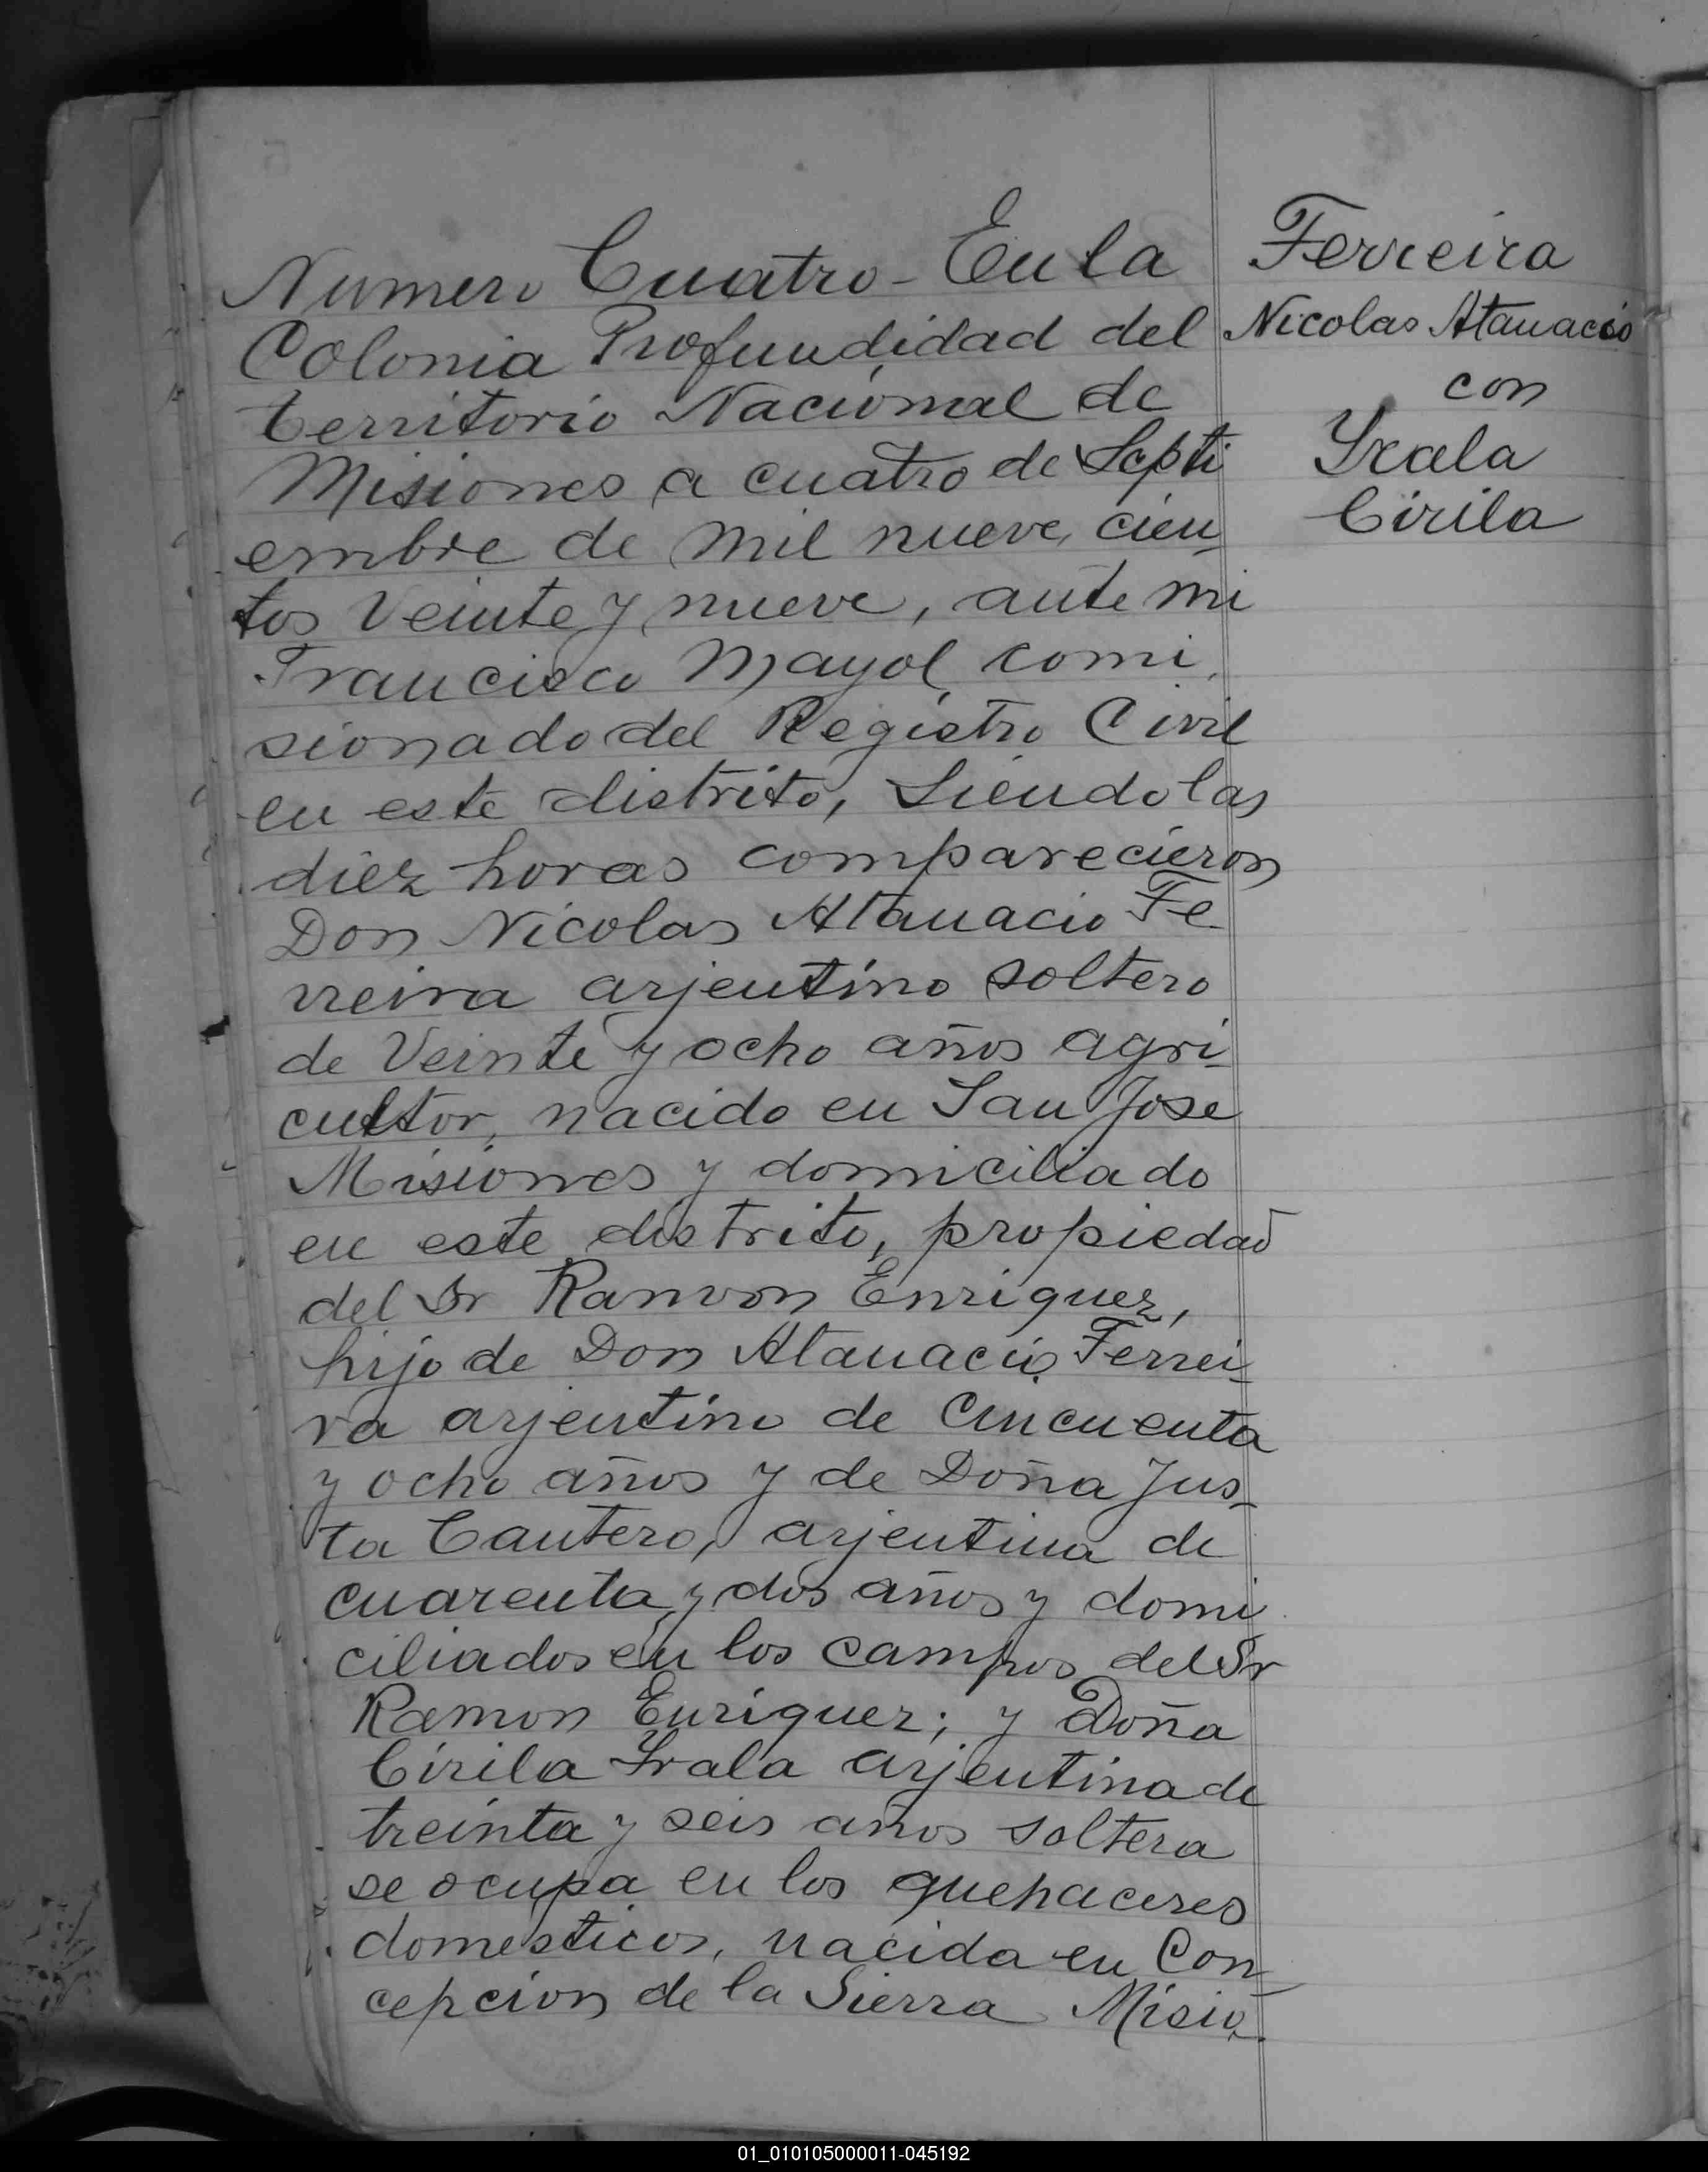 Numero Cuatro - En la
Colonia Profundidad del
territorio Nacional de
Misiones a cuatro de Septi
embre de mil nueve cien-
tos Veinte y nueve, ante mi
Francisco Mayol comi
sionado del Registro Civil
en este distrito, Siendo las
diez horas comparecieron
Don Nicolas Atanacio Fe-
rreira arjentino soltero
de Veinte y ocho años agri-
cultor, nacido en San Jose
Misiones y domiciliado
en este distrito, propiedad
del Sr Ramon Enriquez,
hijo de Don Atanacio Ferrei-
ra arjentino de Cincuenta
y ocho años y de Doña Jus-
ta Cantero, arjentina de
cuarenta y dos años y domi
ciliados en los campos del Sr
Ramon Enriquez; y Doña
Cirila Irala arjentina de
treinta y seis años soltera
se ocupa en los quehaceres
domesticos, nacida en Con-
cepcion de la Sierra Misio-
Ferreira
Nicolas Atanacio
con
Yrala
Cirila
01_010105000011-045192